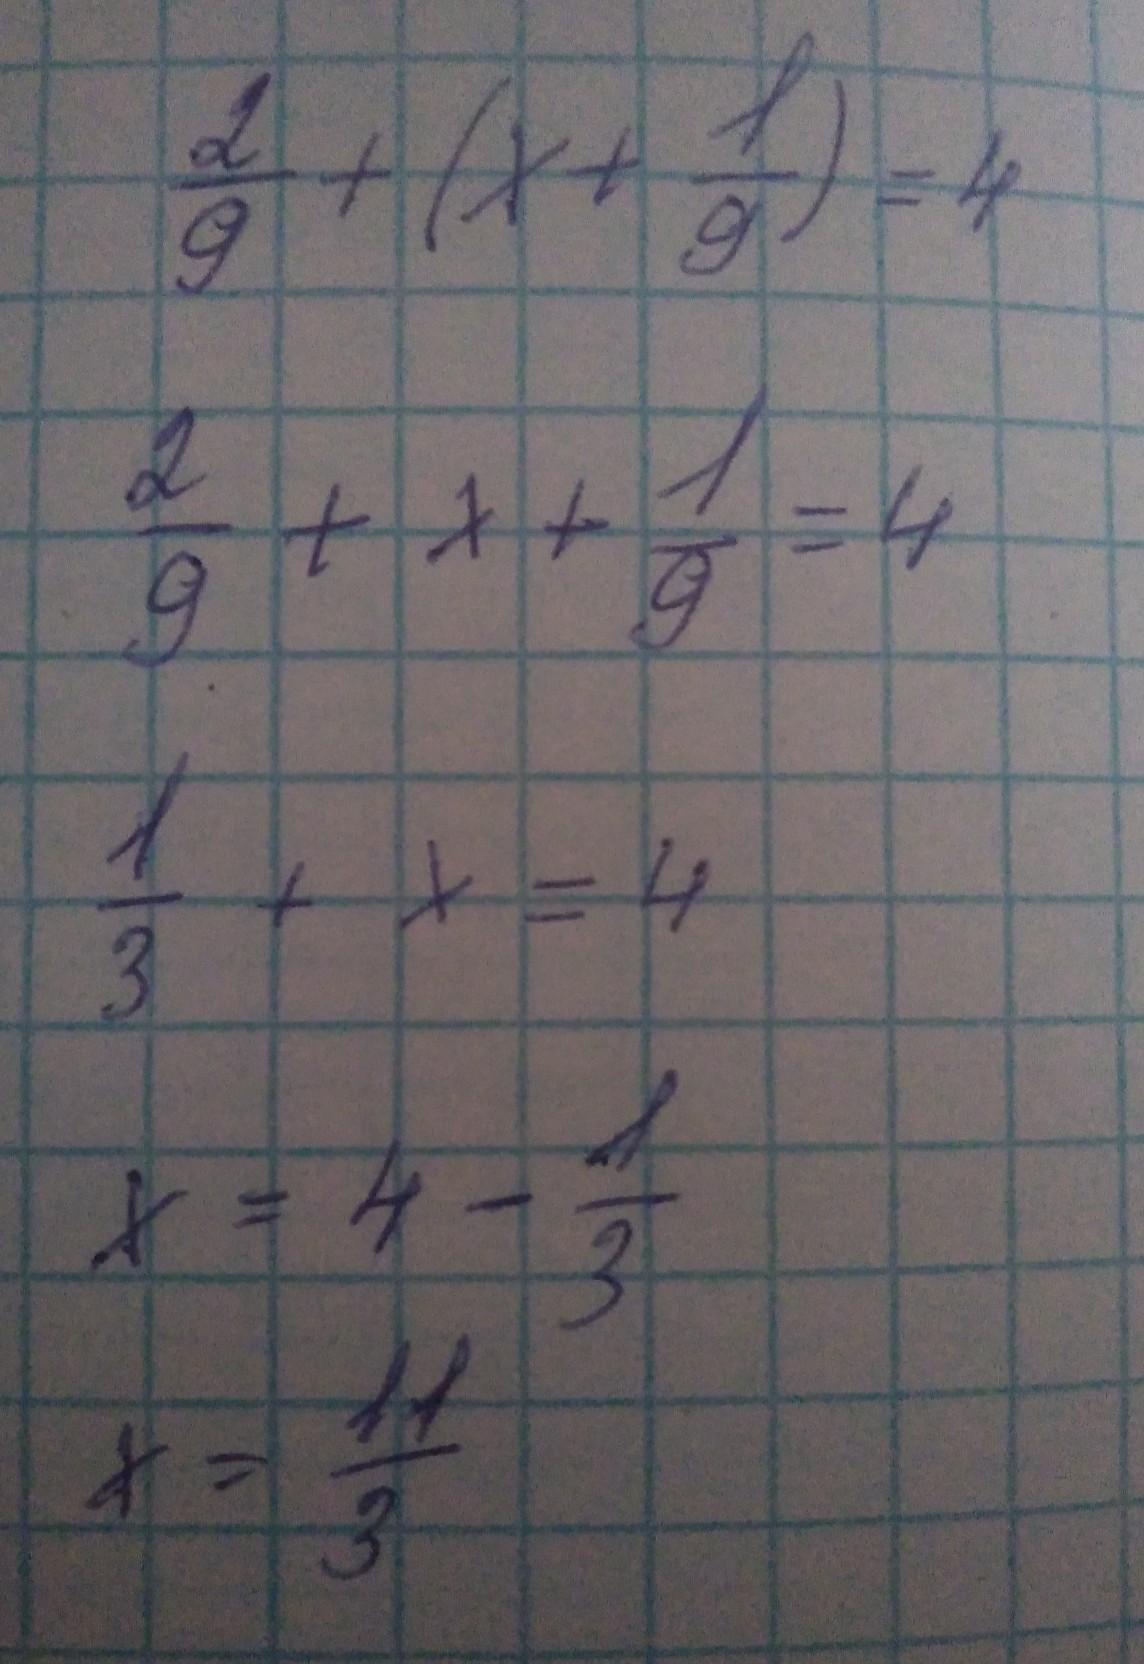 2/9 + (x + 1/9) = 4
2/9 + x + 1/9 = 4
1/3 + x = 4
x = 4 - 1/3
x = 11/3